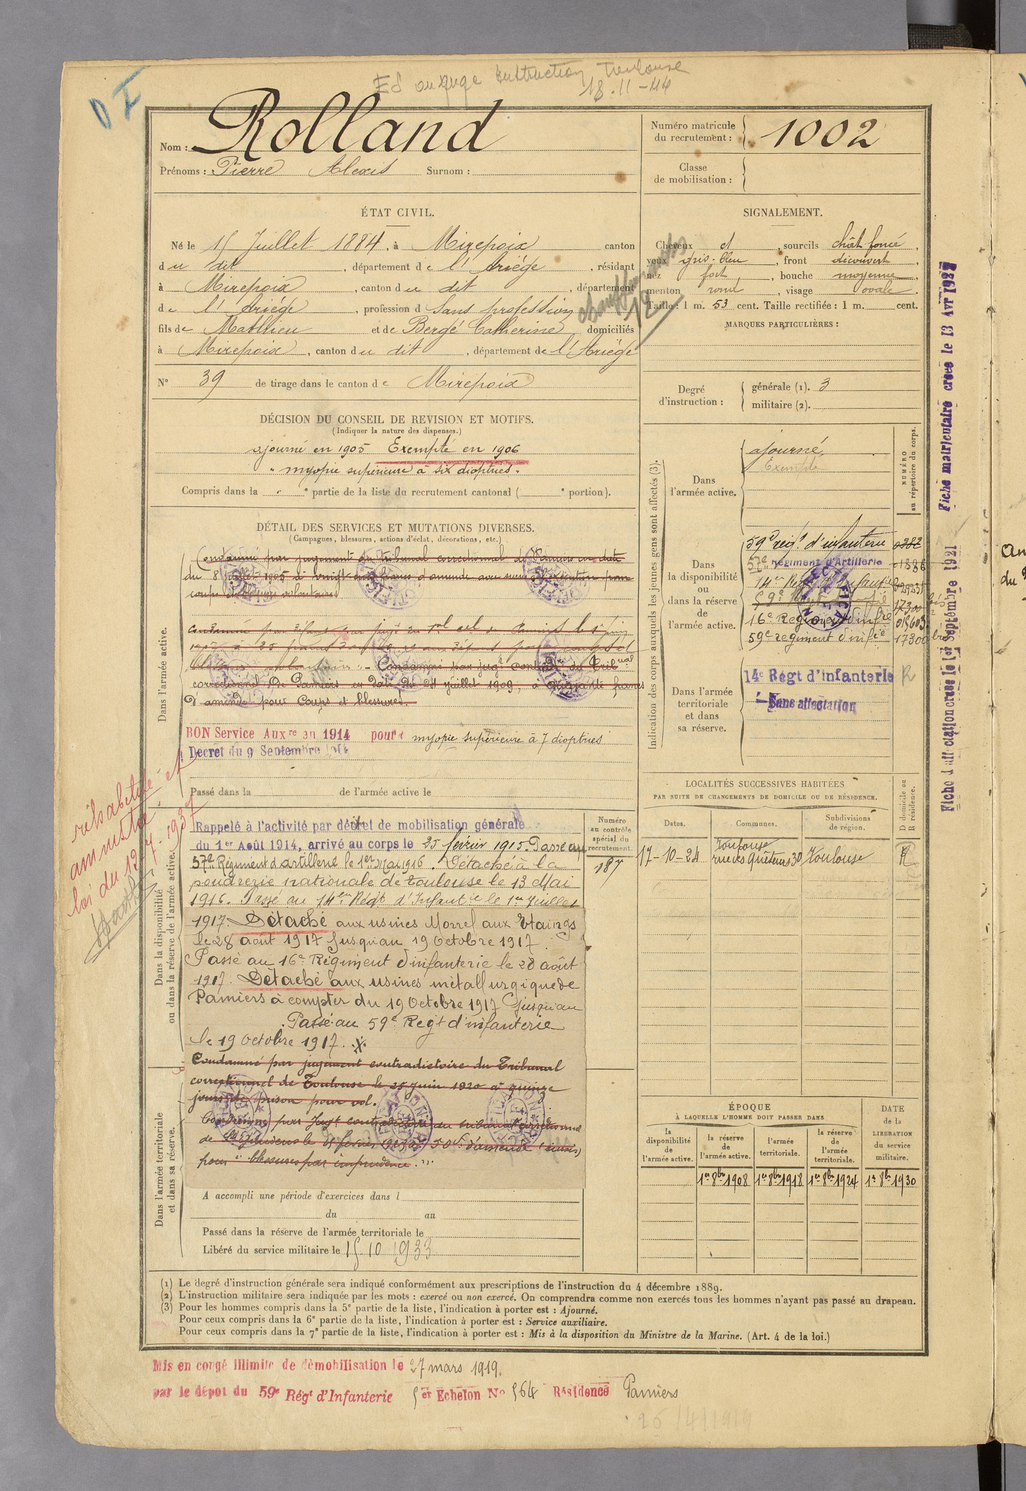 Instruction Toulouse
18-11-44
Nom : Rolland
Prénoms : Pierre Alexis Surnom :
Numéro matricule du recrutement : 1002
Classe de mobilisation :
ÉTAT CIVIL.
Né le 15 Juillet 1884, à Mirepoix canton
du dit, département de l'Ariège, résidant
à Mirepoix, canton du dit, département
de l'Ariège, profession d Sans profession
fils de Mathieu et de Bergé Catherine, domiciliés
à Mirepoix, canton du dit, département de l'Ariège
N° 39 de tirage dans le canton de Mirepoix
SIGNALEMENT.
Cheveux et, sourcils chât foncé,
yeux gris-bleu, front découvert
nez fort, bouche moyenne
menton rond, visage ovale
Taille : 1 m. 53 cent. Taille rectifiée : 1 m. cent.
MARQUES PARTICULIÈRES :
Degré d'instruction : générale (1). 3
militaire (2).
DÉCISION DU CONSEIL DE REVISION ET MOTIFS.
(Indiquer la nature des dispenses.)
ajourné en 1905 Exempté en 1906
"myopie supérieure à six dioptries".
Compris dans la " " partie de la liste du recrutement cantonal ( portion).
DÉTAIL DES SERVICES ET MUTATIONS DIVERSES.
(Campagnes, blessures, actions d'éclat, décorations, etc.)
Dans l'armée active.
Condamné par jugement du tribunal correctionnel de Pamiers en date
coups et blessures volontaires
Condamné par jugt contradre du Tribunal
correctionnel de Pamiers en date du 21 juillet 1909, à cinquante francs
d'amende pour Coups et blessures.
BON Service Auxre en 1914 pour myopie supérieure à 7 dioptries
Décret du 9 Septembre 1914
Passé dans la de l'armée active le
réhabilité et
amnistié
loi du 12-7-1937
Dans la disponibilité ou dans la réserve de l'armée active.
Rappelé à l'activité par décret de mobilisation générale
du 1er Août 1914, arrivé au corps le 25 février 1915. Passé au
57e Régiment d'artillerie le 1er Mai 1916. Détaché à la
poudrerie nationale de Toulouse le 13 Mai
1916. Passé au 14e Régt d'Infantrie le 1er Juillet
1917. Détaché aux usines Morrel aux Etaings
le 28 août 1917 jusqu'au 19 Octobre 1917.
Passé au 16e Régiment d'infanterie le 28 août
1917. Détaché aux usines métallurgique de
Pamiers à compter du 19 Octobre 1917 jusqu'au
Passé au 59e Regt d'infanterie
le 19 octobre 1917.
Condamné par jugement contradictoire du Tribunal
correctionnel de Toulouse le 25 juin 1920 à quinze
jours de prison pour vol.
pour "blessures par imprudence".
Dans l'armée territoriale et dans sa réserve.
Numéro au contrôle spécial du recrutement.
187
A accompli une période d'exercices dans l
du au
Passé dans la réserve de l'armée territoriale le
Libéré du service militaire le 15-10 1933
Indication des corps auxquels les jeunes gens sont affectés (3).
NUMÉRO au répertoire du corps.
Dans l'armée active.
ajourné
Exempté
Dans la disponibilité ou dans la réserve de l'armée active.
59e régt d'infanterie
57e régiment d'Artillerie
16e Régiment d'infie
59e régiment d'infie 17300
Dans l'armée territoriale et dans sa réserve.
14e Régt d'infanterie R
Sans affectation
Fiche matriculaire créée le 13 Avr 1932
Fiche d'affectation créée le 1er Septembre 1921
LOCALITÉS SUCCESSIVES HABITÉES
PAR SUITE DE CHANGEMENTS DE DOMICILE OU DE RÉSIDENCE.
Dates. Communes. Subdivisions de région. D domicile ou R résidence.
17-10-24 Toulouse Toulouse R
ÉPOQUE
À LAQUELLE L'HOMME DOIT PASSER DANS
la disponibilité de l'armée active. la réserve de l'armée active. l'armée territoriale. la réserve de l'armée territoriale.
DATE de la LIBÉRATION du service militaire.
1er 8bre 1908 1er 8bre 1918 1er 8bre 1924 1er 8bre 1930
(1) Le degré d'instruction générale sera indiqué conformément aux prescriptions de l'instruction du 4 décembre 1889.
(2) L'instruction militaire sera indiquée par les mots : exercé ou non exercé. On comprendra comme non exercés tous les hommes n'ayant pas passé au drapeau.
(3) Pour les hommes compris dans la 5e partie de la liste, l'indication à porter est : Ajourné.
Pour ceux compris dans la 6e partie de la liste, l'indication à porter est : Service auxiliaire.
Pour ceux compris dans la 7e partie de la liste, l'indication à porter est : Mis à la disposition du Ministre de la Marine. (Art. 4 de la loi.)
Mis en congé illimité de démobilisation le 27 mars 1919.
par le dépôt du 59e Régt d'Infanterie Echelon No 564 Résidence Pamiers